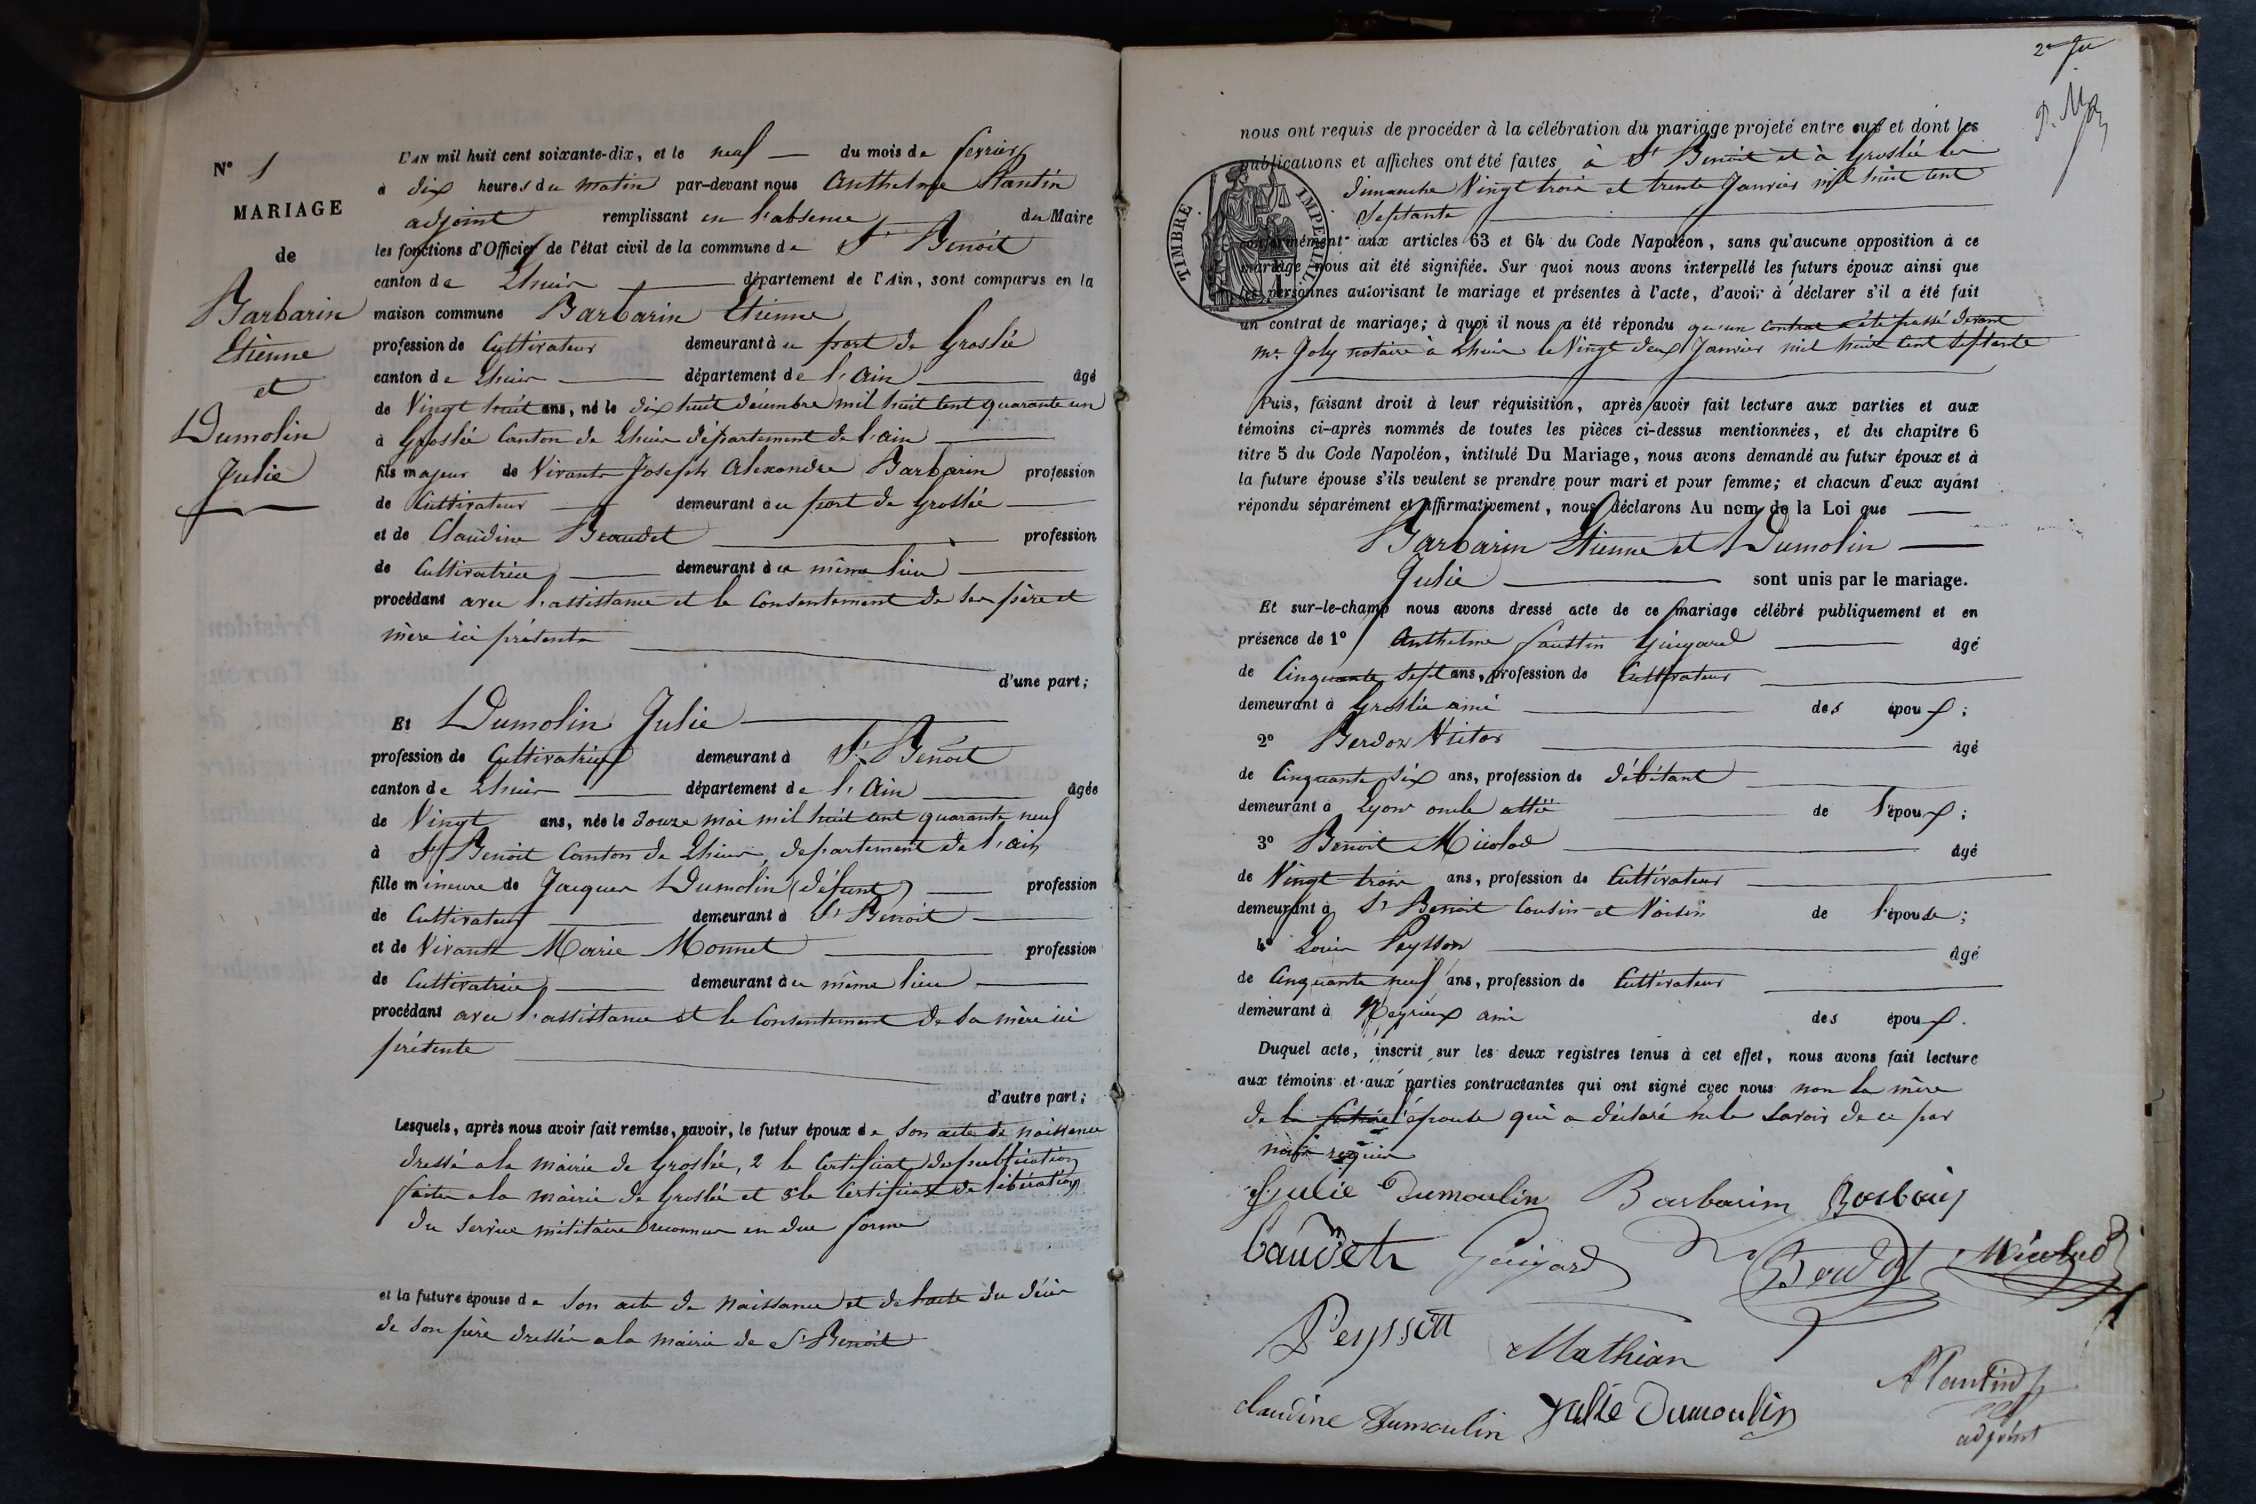 N° 1
MARIAGE
de
Barbarin
Etienne
et
Dumolin
Julie
L'AN mil huit cent soixante-dix, et le neuf du mois de fevrier
à dix heures du matin par-devant nous Anthelme Plantin
adjoint remplissant en l'absence du Maire
les fonctions d'Officier de l'état civil de la commune de St Benoit
canton de Lhuis département de l'Ain, sont comparus en la
maison commune Barbarin Etienne
profession de Cultivateur demeurant à u port de Groslée
canton de Lhuis département de l'Ain âgé
de Vingt huit ans, né le dix huit décembre mil huit cent quarante un
à Groslée Canton de Lhuis département de l'ain
fils majeur de Vivants Joseph Alexandre Barbarin profession
de Cultivateur demeurant à u port de Groslée
et de Claudine Beaudet profession
de Cultivatrice demeurant à u même lieu
procédant avec l'assistance et le Consentement de ses père et
mère ici présents
d'une part;
Et Dumolin Julie
profession de Cultivatrice demeurant à St Benoit
canton de Lhuis département de l'Ain âgée
de Vingt ans, née le douze mai mil huit cent quarante neuf
à St Benoit Canton de Lhuis, département de l'ain
fille mineure de Jacques Dumolin (défunt) profession
de Cultivateur demeurant à St Benoit
et de Vivante Marie Monnet profession
de Cultivatrice demeurant à u même lieu
procédant avec l'assistance et le Consentement de sa mère ici
présente
d'autre part;
Lesquels, après nous avoir fait remise, savoir, le futur époux de son acte de naissance
dressé a la mairie de Groslée, 2 le Certificat de publication
faites a la mairie de Groslée et 3 le Certificat de libération
du service militaire reconnu en due forme
et la future épouse de son acte de naissance et de l'acte du décès
de son père dressés a la mairie de St Benoit
2e
nous ont requis de procéder à la célébration du mariage projeté entre eux et dont les
publications et affiches ont été faites à St Benoit et à Groslée les
dimanche Vingt trois et trente Janvier mil huit cent
septante
TIMBRE IMPERIAL
conformément aux articles 63 et 64 du Code Napoléon, sans qu'aucune opposition à ce
mariage nous ait été signifiée. Sur quoi nous avons interpellé les futurs époux ainsi que
les personnes autorisant le mariage et présentes à l'acte, d'avoir à déclarer s'il a été fait
un contrat de mariage; à quoi il nous a été répondu qu'un contrat a été passé devant
mr Joly notaire à Lhuis le Vingt deux Janvier mil huit cent septante
Puis, faisant droit à leur réquisition, après avoir fait lecture aux parties et aux
témoins ci-après nommés de toutes les pièces ci-dessus mentionnées, et du chapitre 6
titre 5 du Code Napoléon, intitulé Du Mariage, nous avons demandé au futur époux et à
la future épouse s'ils veulent se prendre pour mari et pour femme; et chacun d'eux ayant
répondu séparément et affirmativement, nous déclarons Au nom de la Loi que
Barbarin Etienne et Dumolin
Julie sont unis par le mariage.
Et sur-le-champ nous avons dressé acte de ce mariage célébré publiquement et en
présence de 1° Anthelme faustin Guigard âgé
de Cinquante sept ans, profession de Cultivateur
demeurant à Groslée ami des époux;
2° Berdon Victor âgé
de Cinquante six ans, profession de débitant
demeurant à Lyon oncle allié de l'époux;
3° Benoit Micolod âgé
de Vingt trois ans, profession de Cultivateur
demeurant à St Benoit Cousin et Voisin de l'épouse;
4° Louis Peysson âgé
de Cinquante neuf ans, profession de Cultivateur
demeurant à Meyrieux ami des époux.
Duquel acte, inscrit sur les deux registres tenus à cet effet, nous avons fait lecture
aux témoins et aux parties contractantes qui ont signé avec nous non la mère
de la future l'épouse qui a déclaré ne le savoir de ce par
nous requis
Julie Dumoulin Barbarin Barbarin
Baudet Guigard Berdot Micolod
Peysson Mathian
A Plantin
claudine Dumoulin Julie Dumoulin
adjoint